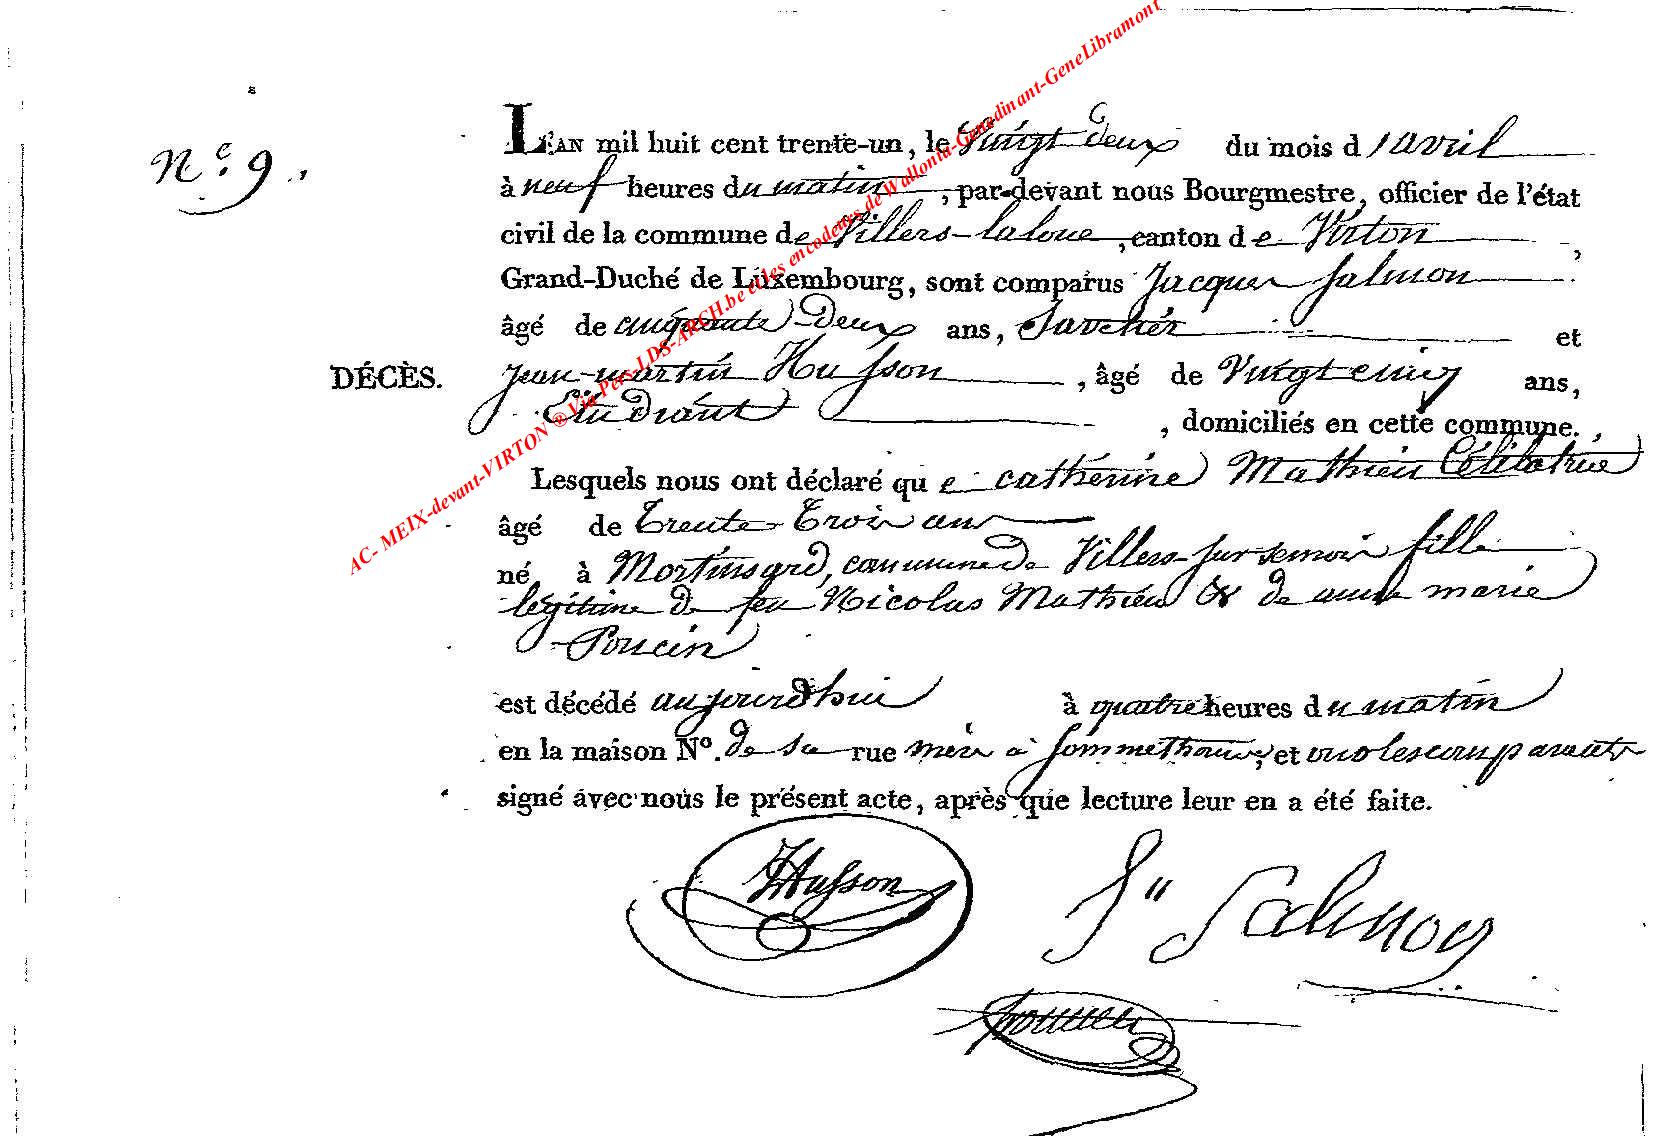 N.e 9.
L'EAN mil huit cent trente-un, le Vingt deux du mois d'avril
à neuf heures du matin, par-devant nous Bourgmestre, officier de l'état
civil de la commune de Villers-laloue, canton de Virton,
Grand-Duché de Luxembourg, sont comparus Jacques Salmon
âgé de cinquante-deux ans, et
DÉCÈS. Jean-martin Husson, âgé de Vingt cinq ans,
Etudiant, domiciliés en cette commune.
Lesquels nous ont déclaré que catherine Mathieu Célibatrice
âgé de Trente-Trois ans
né à Mortinsard, commune de Villers-sur semois fille
légitime de feu Nicolas Mathieu & de anne marie
Poncin
est décédé aujourdhui à quatre heures du matin
en la maison N°. de sa rue mère à Sommethonne, et ont les comparants
signé avec nous le présent acte, après que lecture leur en a été faite.
JHusson
J" Salmon
AC- MEIX-devant-VIRTON ® Via Pers-LDS-ARCH.be et les encodeurs de Wallonia-Genedinant-GeneLibramont